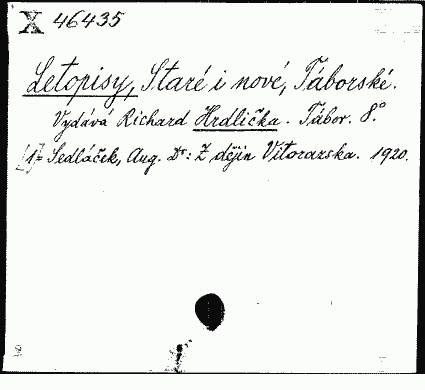 X 46435
Letopisy, Staré i nové, Táborské.
Vydává Richard Hrdlička. Tábor. 8°.
[1]= Sedláček, Aug. Dr: Z dějin Vitorazska. 1920.